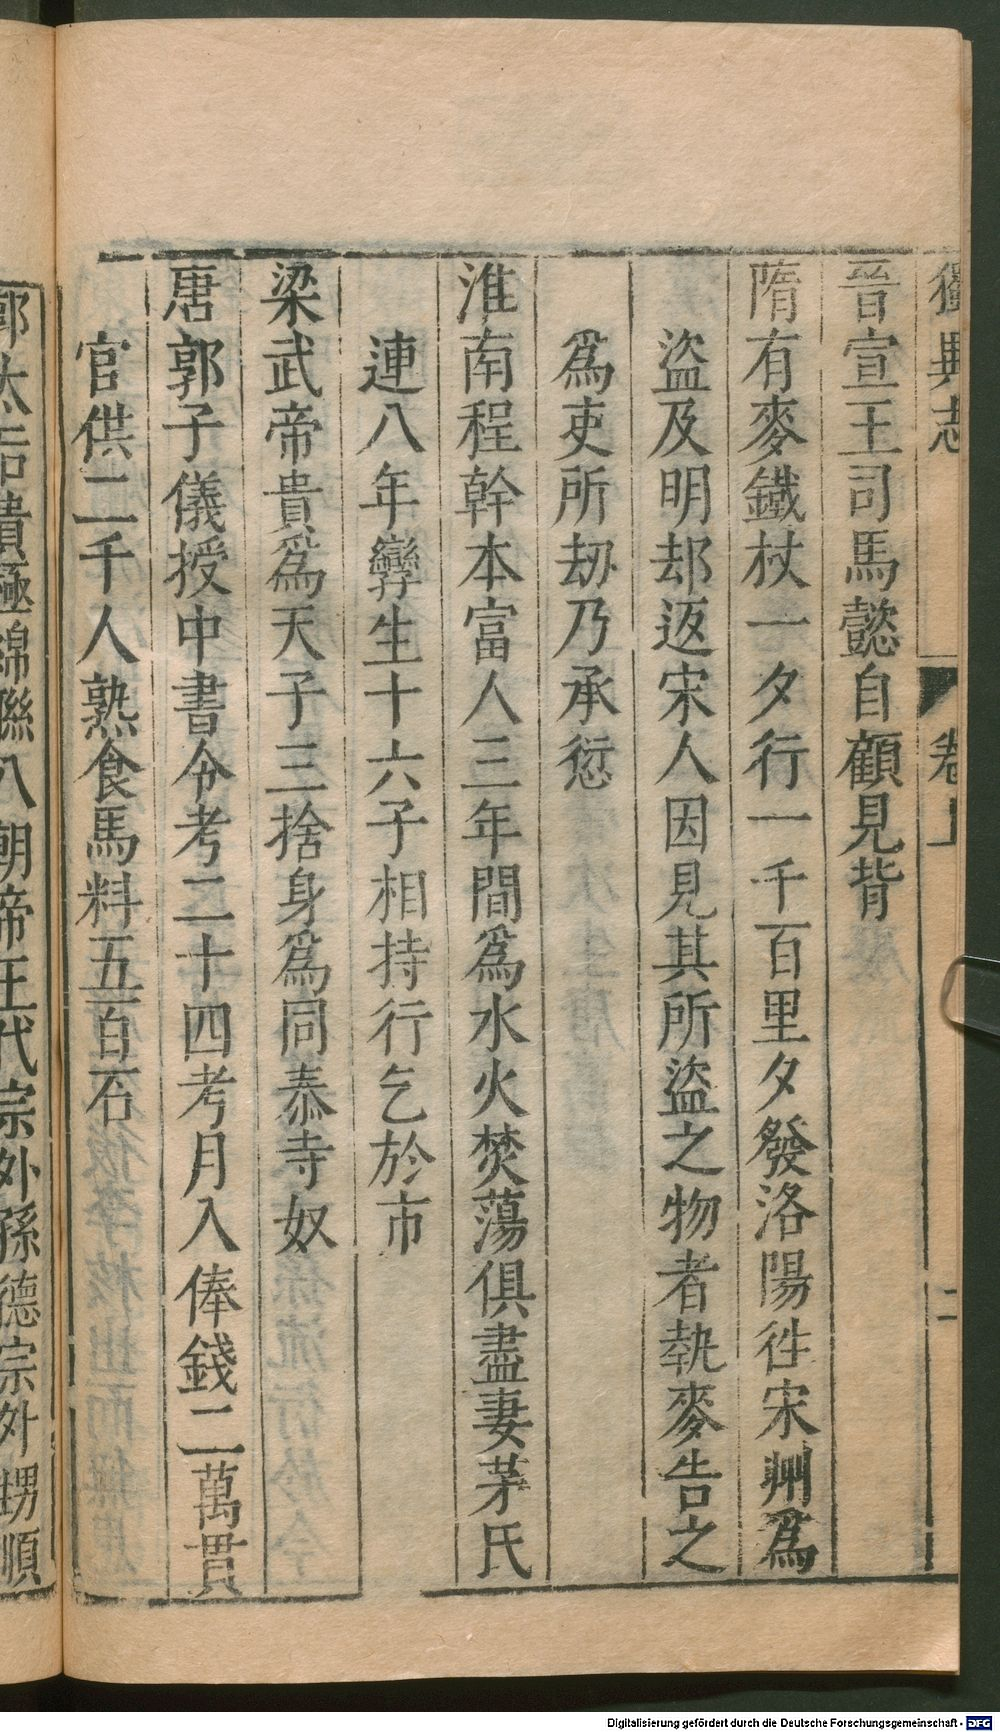 獨異志 卷上 二
晉宣王司馬懿自顧見背
隋有麥鐵杖一夕行一千百里夕發洛陽徃宋州爲
盜及明却返宋人因見其所盜之物者執麥告之
爲吏所刼乃承愆
淮南程幹本富人三年間爲水火焚蕩俱盡妻茅氏
連八年孿生十六子相持行乞於市
梁武帝貴爲天子三捨身爲同泰寺奴
唐郭子儀授中書令考二十四考月入俸錢二萬貫
官供二千人熟食馬料五百石
郭太后貴極綿聮八朝帝王代宗外孫德宗外甥順
Digitalisierung gefördert durch die Deutsche Forschungsgemeinschaft - DFG